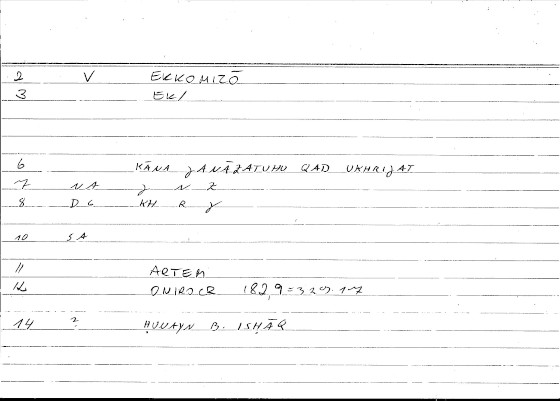 2 V EKKOMIZŌ
3 EK/
6 KĀNA JANĀZATUHU QAD UKHRIJAT
7 NA J N Z
8 DC KH R J
10 SA
11 ARTEM
12 ONIROCR 182,9 = 329.1-2
14 ? ḤUNAYN B. ISḤĀQ